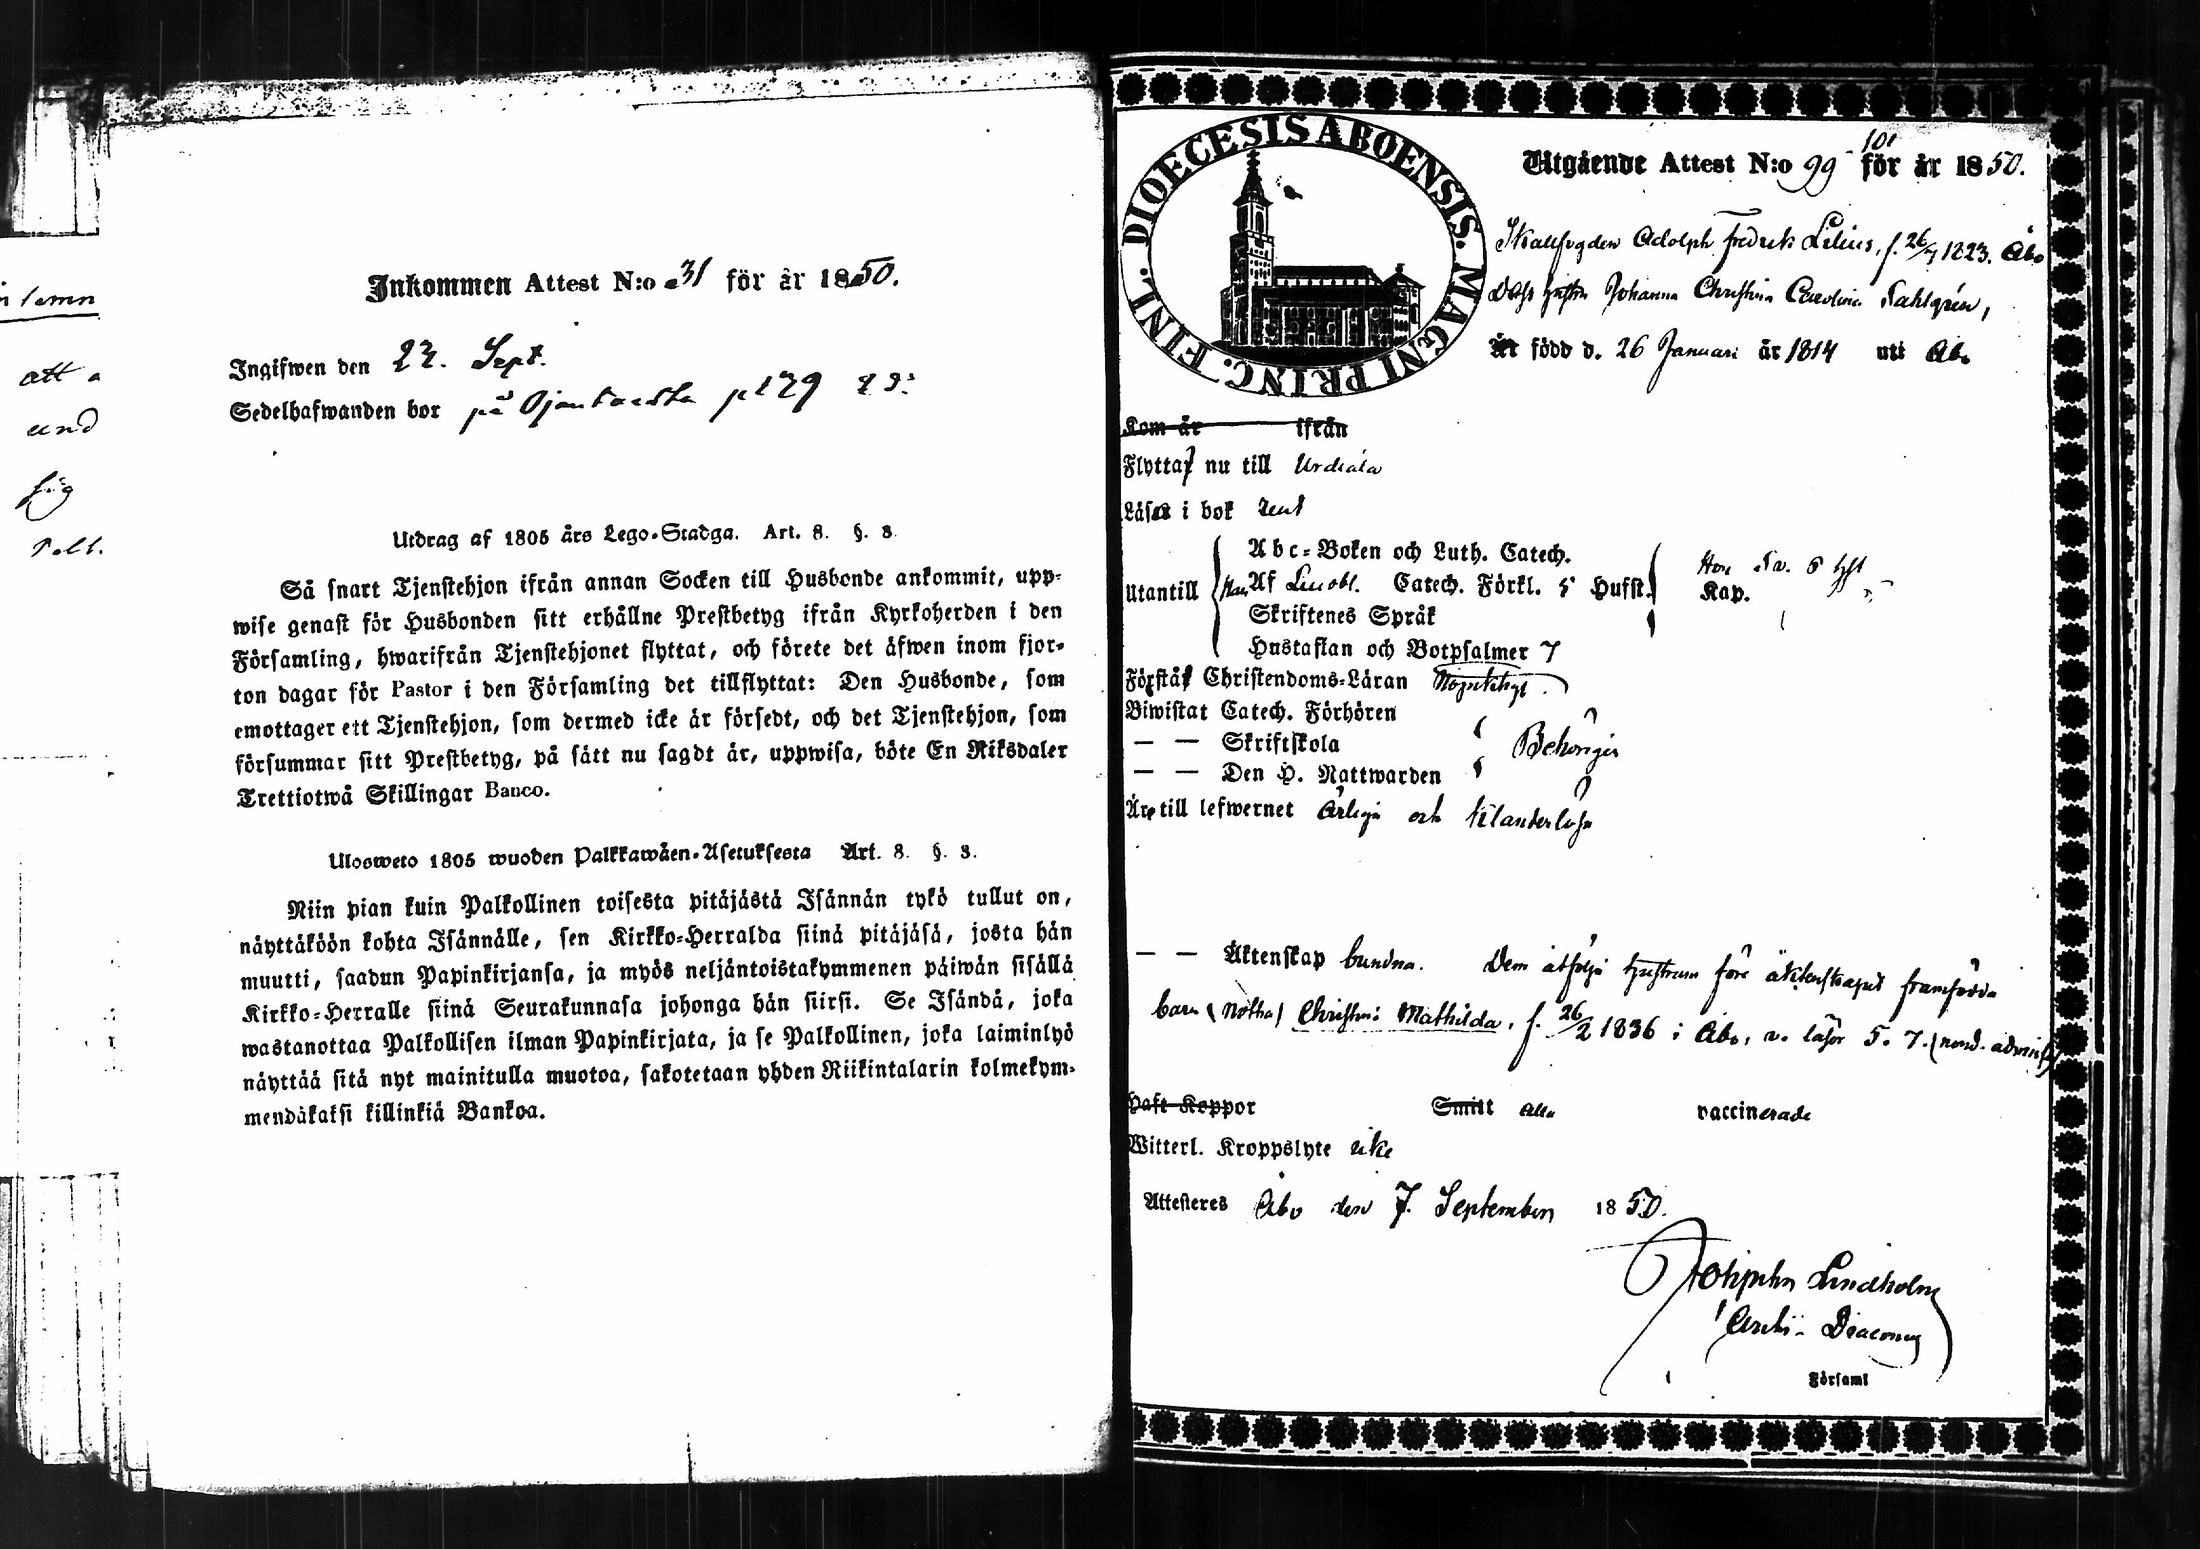 att
und
sig
Inkommen Attest N:o 31 för år 1850.
Ingifwen den 22. Sept.
Sedelhafwanden bor på p 179
Utdrag af 1805 års Lego-Stadga. Art. 8. §. 3
Så snart Tjenstehjon ifrån annan Socken till Husbonde ankommit, upp-
wise genast för Husbonden sitt erhållne Prestbetyg ifrån Kyrkoherden i den
Församling, hwarifrån Tjenstehjonet flyttat, och förete det äfwen inom fjor-
ton dagar för Pastor i den Församling det tillflyttat: Den Husbonde, som
emottager ett Tjenstehjon, som dermed icke är försedt, och det Tjenstehjon, som
försummar sitt Prestbetyg, på sätt nu sagdt är, uppwisa, böte En Riksdaler
Trettiotwå Skillingar Banco.
Ulosweto 1805 wuoden Palkkawäen-Asetuksesta Art. 8. §. 3.
Niin pian kuin Palkollinen toisesta pitäjästä Isännän tykö tullut on,
näyttäköön kohta Isännälle, sen Kirkko-Herralda siinä pitäjäsä, josta hän
muutti, saadun Papinkirjansa, ja myös neljäntoistakymmenen päiwän sisällä
Kirkko-Herralle siinä Seurakunnasa johonga hän siirsi. Se Isändä, joka
wastanottaa Palkollisen ilman Papinkirjata, ja se Palkollinen, joka laiminlyö
näyttää sitä nyt mainitulla muotoa, sakotetaan yhden Riikintalarin kolmekym-
mendäkaksi killinkiä Bankoa.
DIOECESIS ABOENSIS. MAGNI PRINC. FINL.
101
Utgående Attest N:o 99 för år 1850.
Adolph Fredrik Lilius, f. 26/9 1823. Åbo
Dess hustru Johanna Christina Carolina Kahlgrén,
Är född d. 26 Januari år 1814 uti Åbo
Kom år ifrån
Flytta nu till Urdiala
Läser i bok rent
Utantill
Abc-Boken och Luth. Catech.
Af Catech. Förkl. 5 Hufst.
Hon
Kap.
Skriftenes Språk
Hustaflan och Botpsalmer 7
Förstår Christendoms-Läran Nöjaktigt.
Biwistat Catech. Förhören
— — Skriftskola Behörigen
— — Den H. Nattwarden
Är till lefwernet ärliga och klanderlösa
— — Äktenskap bundna. Dem åtfölja hustrun före äktenskapet framfödda
barn (Notha) Christina Mathilda, f. 26/2 1836 i Åbo, v. läser 5. 7.
Haft Koppor Smitt alla vaccinerade
Witterl. Kroppslyte icke
Attesteres Åbo den 7. September 1850.
Lindholm
Archi-Diaconus
Församl